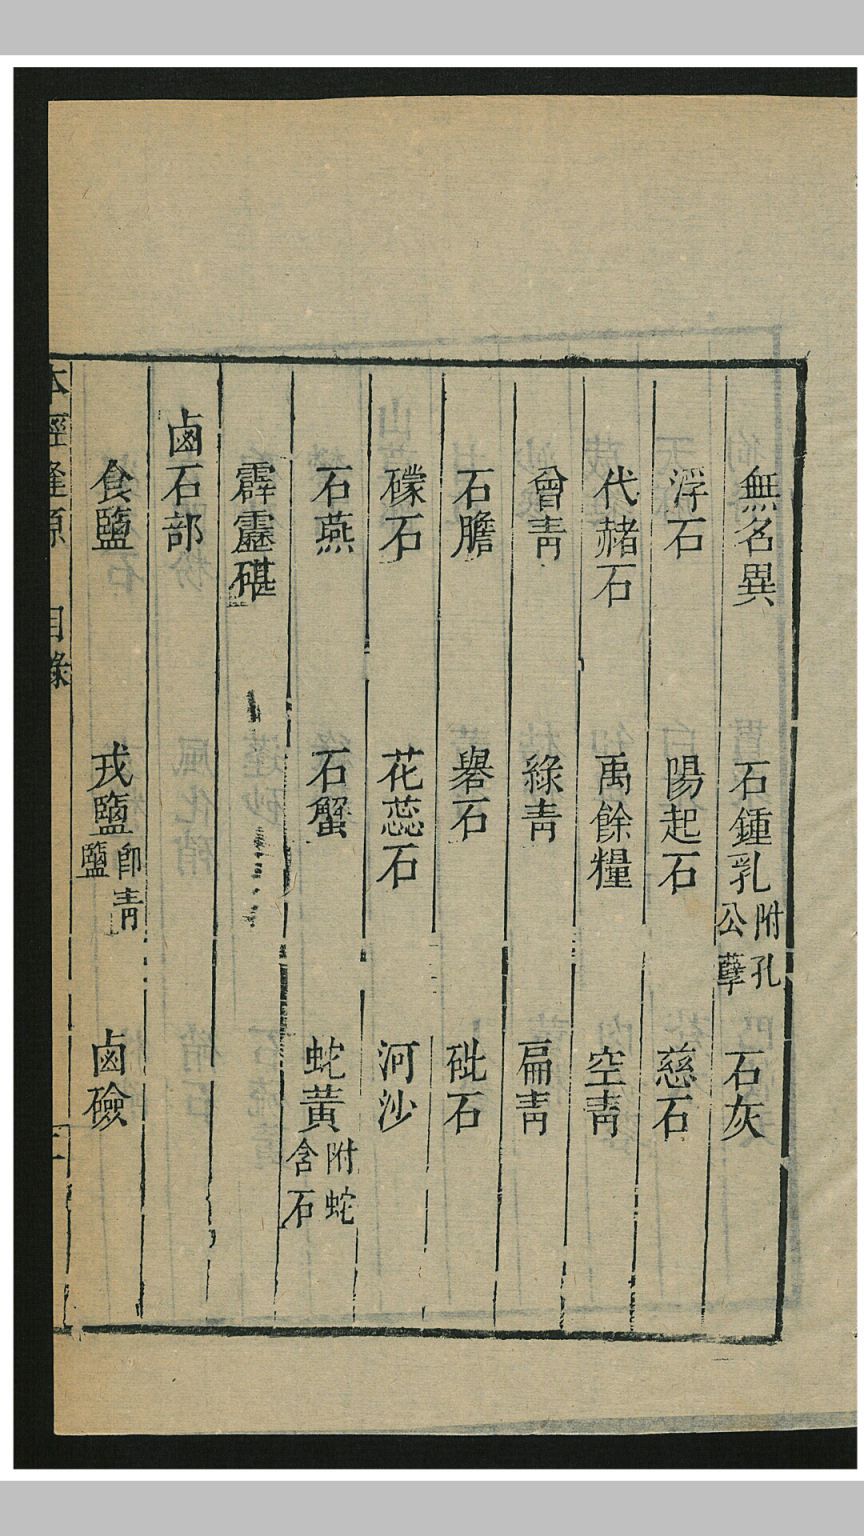 無名異　石鍾乳附孔公孽　石灰
浮石　陽起石　慈石
代赭石　禹餘糧　空青
曾青　綠青　扁青
石膽　礜石　砒石
礞石　花蕊石　河沙
石燕　石蟹　蛇黃附蛇含石
霹靂碪
鹵石部
食鹽　戎鹽卽青鹽　鹵鹼
本經逢原　目錄